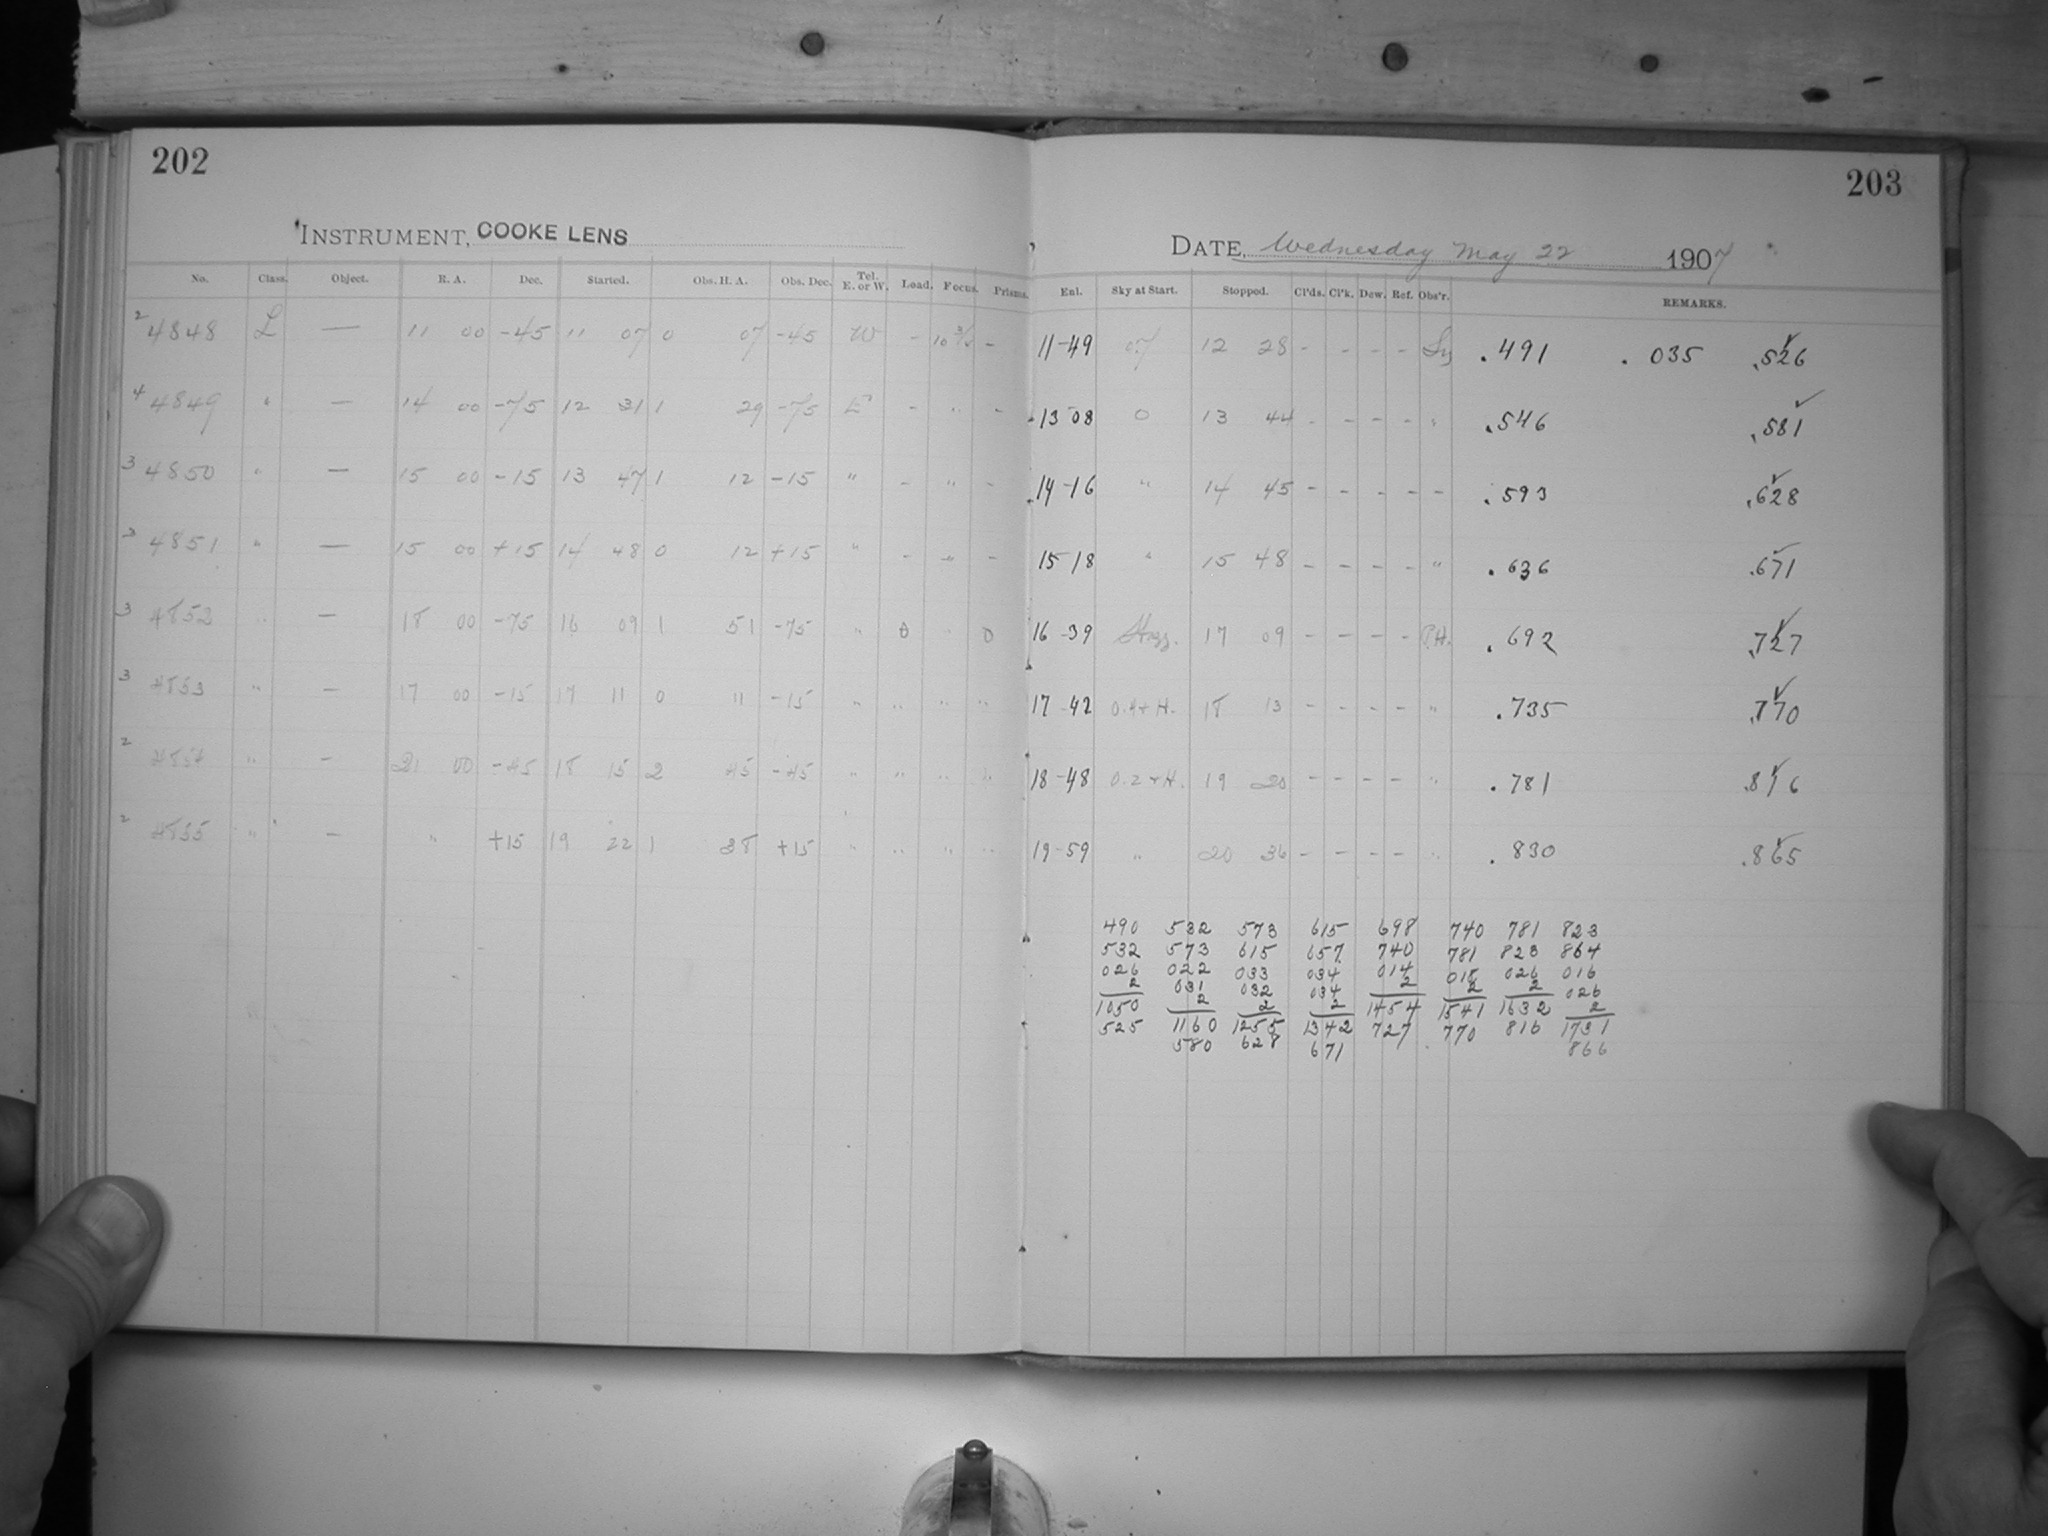 202
203
INSTRUMENT, COOKE LENS
DATE, Wednesday May 22 1907
No. Class. Object. R. A. Dec. Started. Obs. H. A. Obs. Dec. Tel. E. or W. Load. Focus. Prisms. Enl. Sky at Start. Stopped. Cl'ds. Cl'k. Dew. Ref. Obs'r. REMARKS.
2 4848 L — 11 00 -45 11 07 0 07 -45 W - 10 3/4 - 11-49 12 28 - - - - .491 .035 .526
4 4849 " — 14 00 -75 12 31 1 29 -75 E - " - 13 08 0 13 44 - - - - " .546 .581
3 4850 " — 15 00 -15 13 47 1 12 -15 " - " - 14-16 " 14 45 - - - - - .593 .628
3 4851 " — 15 00 +15 14 48 0 12 +15 " - " - 15-18 " 15 48 - - - - " .636 .671
3 4852 " — 18 00 -75 16 09 1 51 -75 " 0 " 0 16-39 17 09 - - - - P.H. .692 .727
3 4853 " — 17 00 -15 17 11 0 11 -15 " " " " 17-42 0.4+H. 18 13 - - - - " .735 .770
2 4854 " — 21 00 -45 18 15 2 45 -45 " " " " 18-48 0.2+H. 19 20 - - - - " .781 .816
2 4855 " — " +15 19 22 1 38 +15 " " " " 19-59 " 20 36 - - - - " .830 .865
490 532 573 615 698 740 781 823
532 573 615 657 740 781 823 864
026 022 033 034 014 018 026 016
2 031 032 034 2 2 2 026
1050 2 2 2 1454 1541 1632 2
525 1160 1255 1342 727 770 816 1731
580 628 671 866